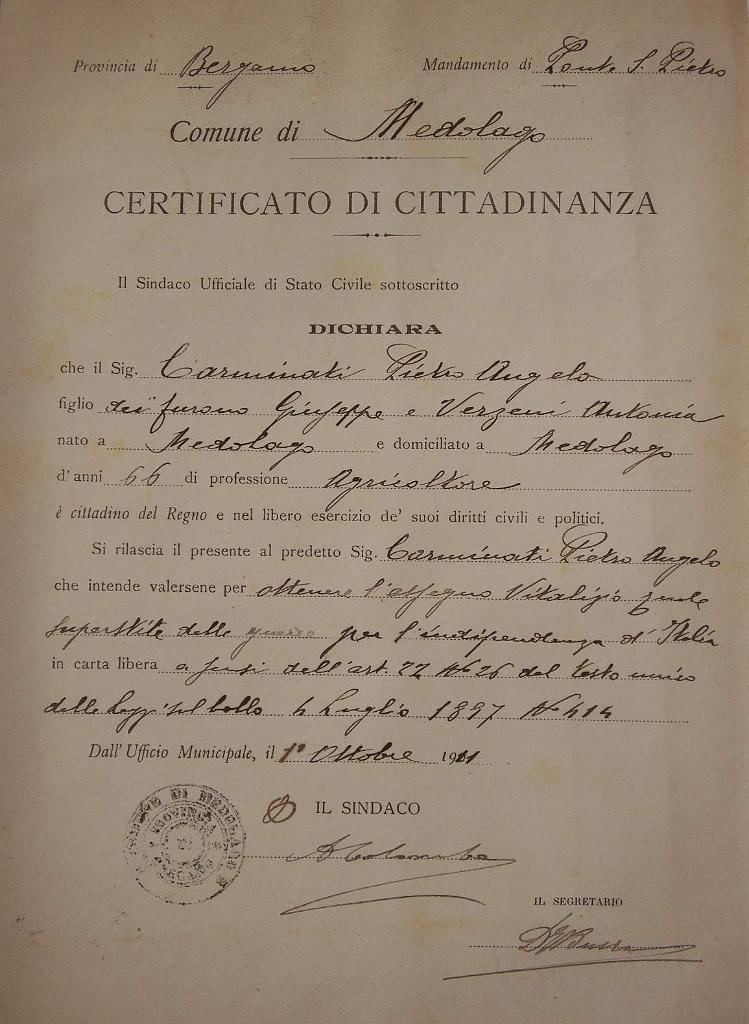 Provincia di Bergamo Mandamento di Ponte S. Pietro
Comune di Medolago
CERTIFICATO DI CITTADINANZA
Il Sindaco Ufficiale di Stato Civile sottoscritto
DICHIARA
che il Sig. Carminati Pietro Angelo
figlio dei furono Giuseppe e Verzeni Antonia
nato a Medolago e domiciliato a Medolago
d'anni 66 di professione Agricoltore
è cittadino del Regno e nel libero esercizio de' suoi diritti civili e politici.
Si rilascia il presente al predetto Sig. Carminati Pietro Angelo
che intende valersene per ottenere l'assegno Vitalizio quale
superstite delle guerre per l'indipendenza d'Italia
in carta libera a sensi dell'art. 27 N° 26 del testo unico
delle Leggi sul bollo 4 Luglio 1897 N° 414
Dall'Ufficio Municipale, il 1° Ottobre 1911
COMUNE DI MEDOLAGO
PROVINCIA DI BERGAMO
IL SINDACO
IL SEGRETARIO